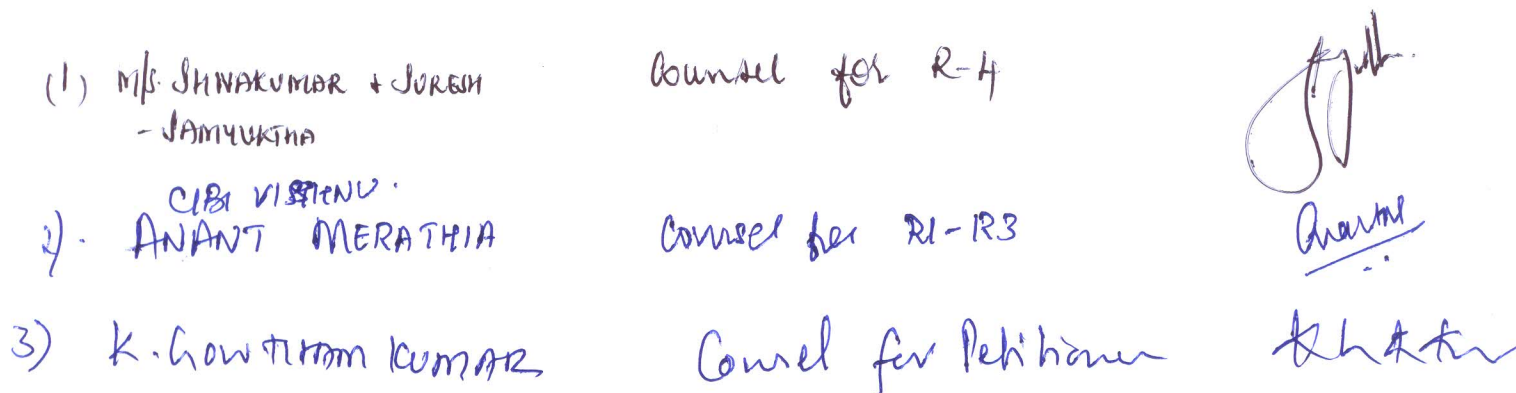 (1) M/S. SHIVAKUMAR + SURESH Counsel for R-4
- SAMYUKTHA
CIBI VISHNU.
2). ANANT MERATHIA Counsel for R1-R3
3) K. Gowtham Kumar Counsel for Petitioner